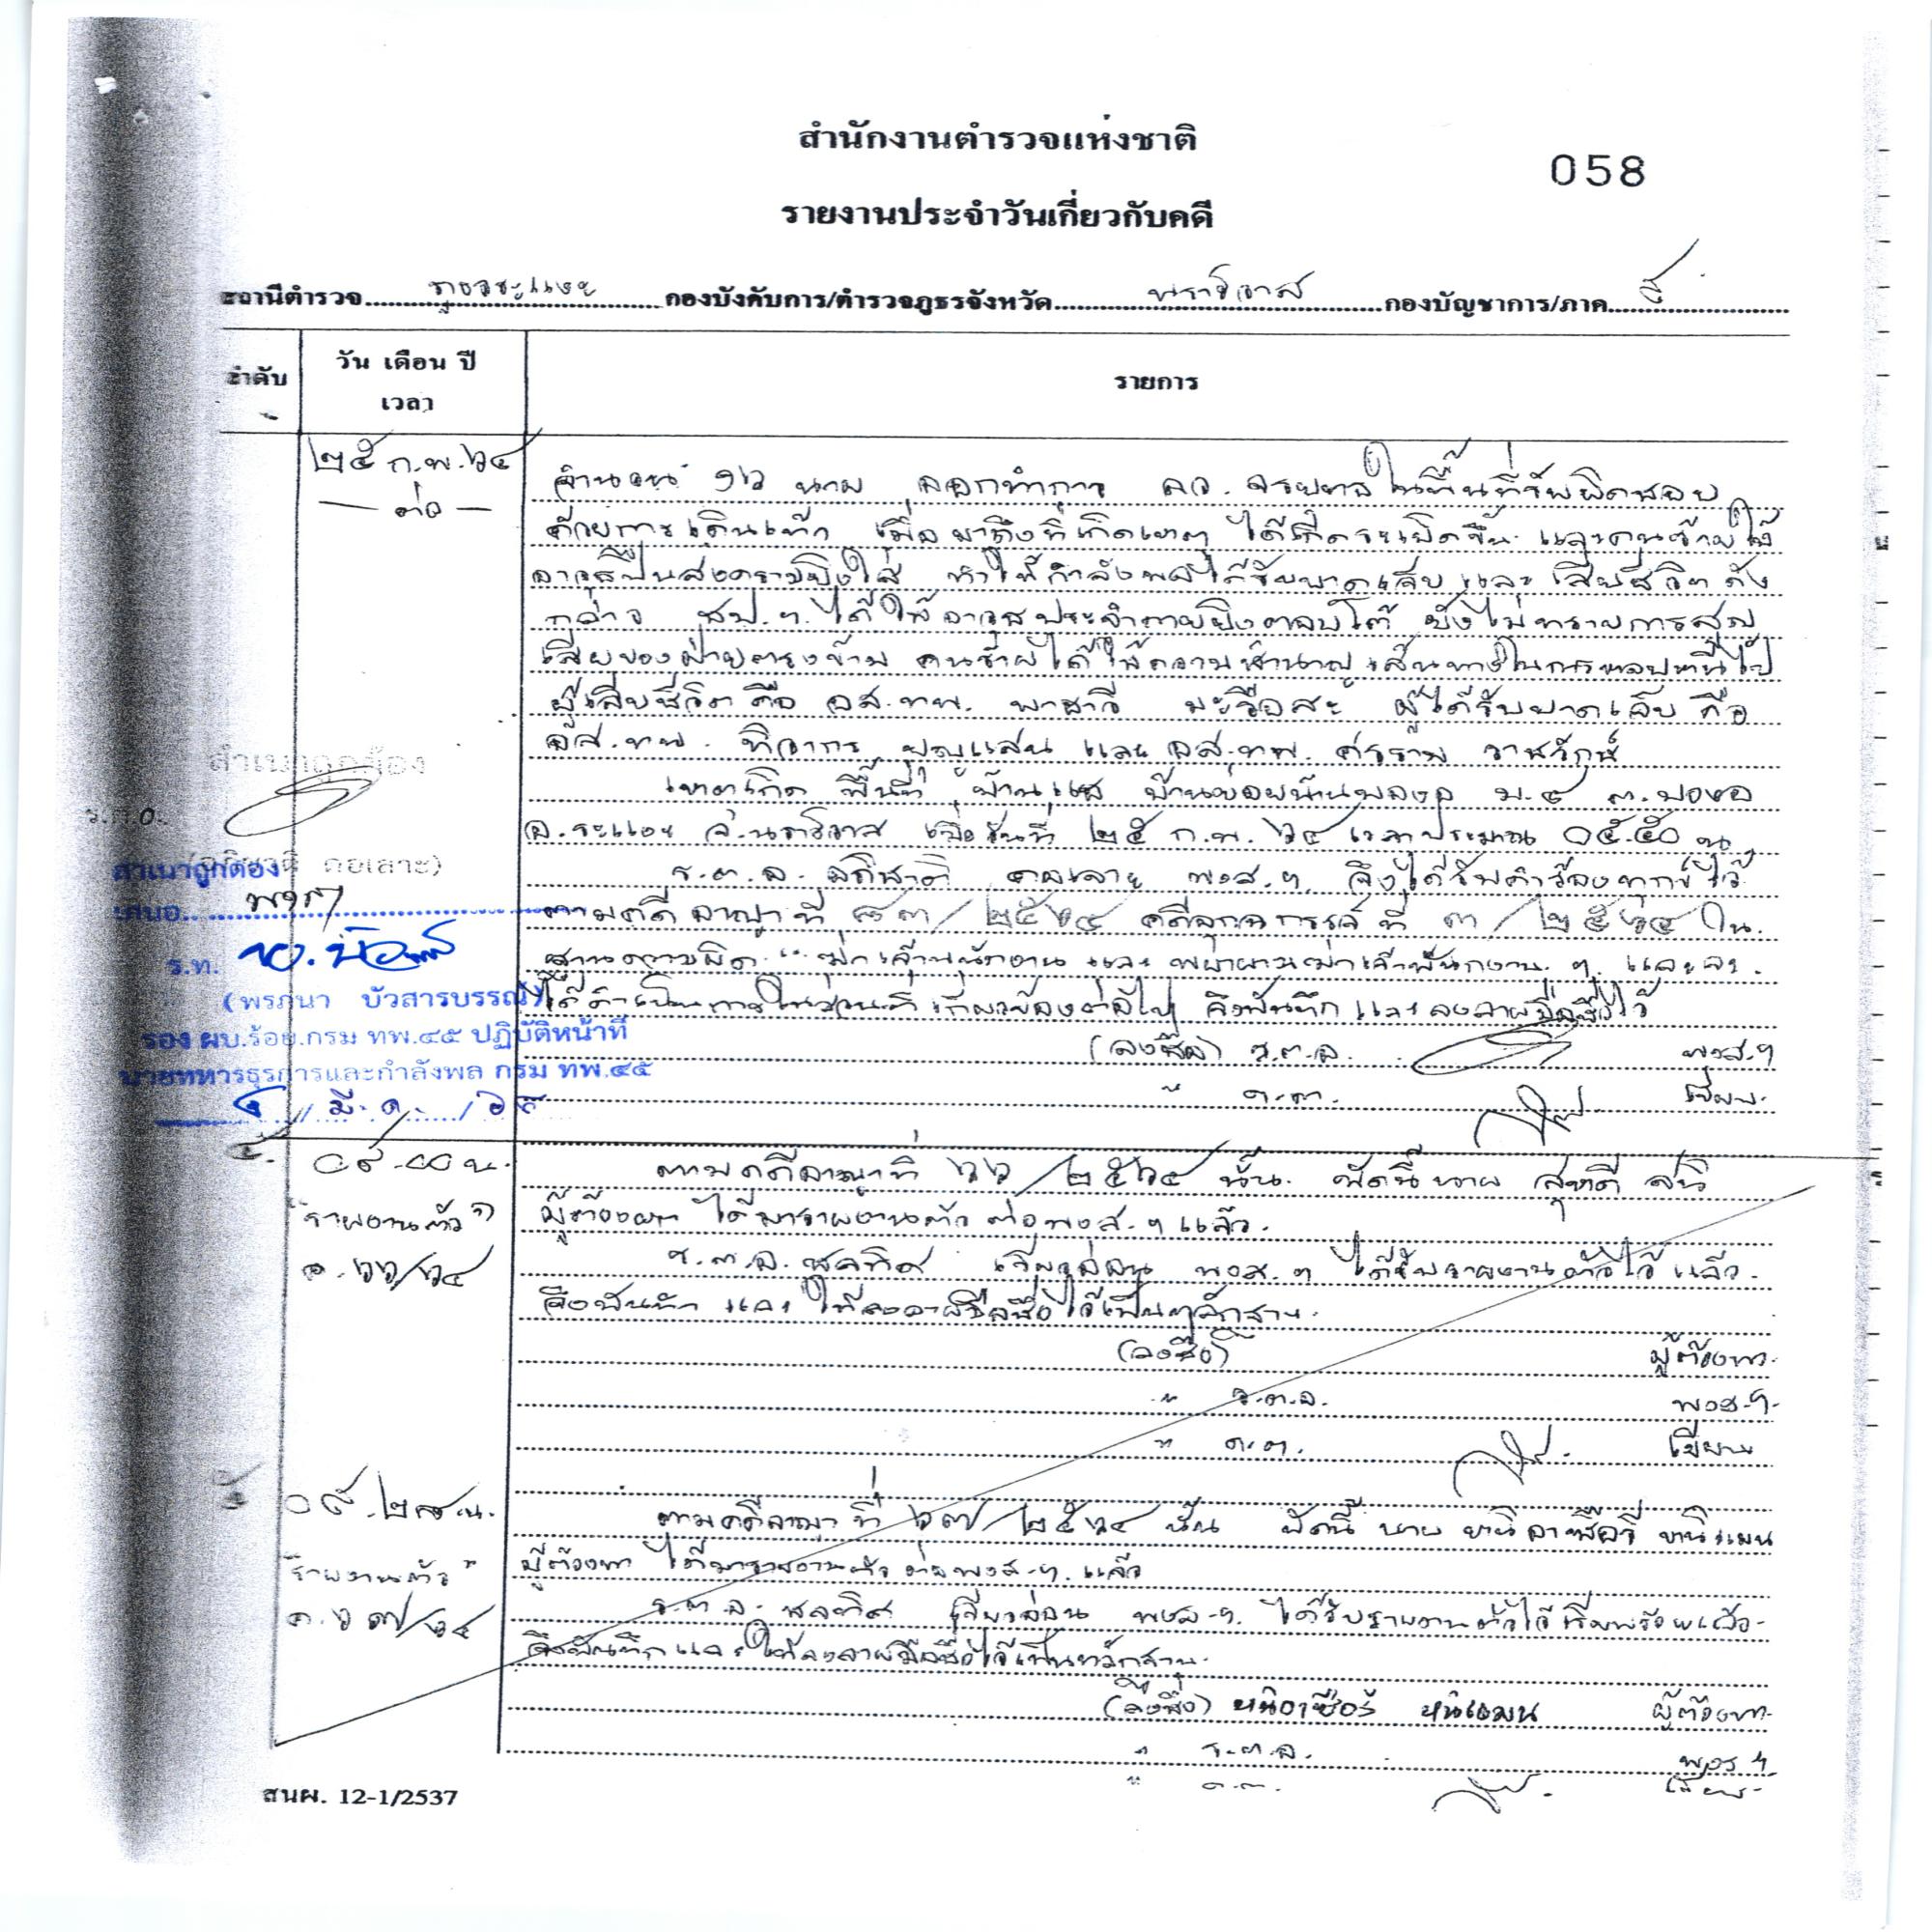 สำนักงานตำรวจแห่งชาติ
058
รายงานประจำวันเกี่ยวกับคดี
สถานีตำรวจ ภูธรระแงะ กองบังคับการ/ตำรวจภูธรจังหวัด นราธิวาส กองบัญชาการ/ภาค ๙
ลำดับ
วัน เดือน ปี
เวลา
รายการ
๒๕ ก.พ. ๖๔
— ต่อ —
จำนวน ๑๖ นาย ออกทำการ ลว. ในพื้นที่รับผิดชอบ
ด้วยการเดินเท้า เมื่อมาถึงที่เกิดเหตุ ได้เกิดระเบิดขึ้น และคนร้ายใช้
อาวุธปืนสงครามยิงใส่ ทำให้กำลังพลได้รับบาดเจ็บ และ เสียชีวิต ดัง
กล่าว ชป.ฯ ได้ใช้อาวุธประจำกายยิงตอบโต้ ยังไม่ทราบการสูญ
เสียของฝ่ายตรงข้าม คนร้ายได้ใช้ความชำนาญเส้นทางในการหลบหนีไป
ผู้เสียชีวิต คือ อส.ทพ. ผู้ได้รับบาดเจ็บ คือ
อส.ทพ. ทิวากร บุญแสน และ อส.ทพ. ศรราม ราชรักษ์
เหตุเกิด พื้นที่ บ้าน ม.๔ ต.
อ.ระแงะ จ.นราธิวาส เมื่อวันที่ ๒๕ ก.พ. ๖๔ เวลาประมาณ ๐๕.๕๐ น.
ร.ต.อ. พงส.ฯ จึงได้รับคำร้องทุกข์ไว้
ตามคดีอาญาที่ ๘๓/๒๕๖๔ คดีอุกฉกรรจ์ ที่ ๓/๒๕๖๔ ใน
ฐานความผิด "ฆ่าเจ้าพนักงาน และ พยายามฆ่าเจ้าพนักงาน ฯ และจะ
ได้ดำเนินการในส่วนที่เกี่ยวข้องต่อไป จึงบันทึก และ ลงลายมือชื่อไว้
(ลงชื่อ) ร.ต.อ. พงส.ฯ
" ด.ต. เขียน
สำเนาถูกต้อง
ร.ต.อ.
สำเนาถูกต้อง
เสนอ
ร.ท.
(พรภนา บัวสารบรรณ์)
รอง ผบ.ร้อย.กรม ทพ.๔๕ ปฏิบัติหน้าที่
นายทหารธุรการและกำลังพล กรม ทพ.๔๕
/ มี.ค. /
๐๙.๐๐ น.
"รายงานตัว"
อ.๖๖/๖๔
ตามคดีอาญาที่ ๖๖/๒๕๖๔ นั้น บัดนี้ นาย
ผู้ต้องหา ได้มารายงานตัว ต่อ พงส.ฯ แล้ว.
ร.ต.อ. ชลทิศ พงส.ฯ ได้รับรายงานตัวไว้แล้ว.
จึงบันทึก และ ให้ลงลายมือชื่อไว้เป็นหลักฐาน.
(ลงชื่อ) ผู้ต้องหา
" ร.ต.อ. พงส.ฯ
" ด.ต. เขียน
"รายงานตัว"
อ.๖๗/๖๔
ตามคดีอาญาที่ ๖๗/๒๕๖๔ นั้น บัดนี้ นาย
ผู้ต้องหา ได้มารายงานตัว ต่อ พงส.ฯ แล้ว
ร.ต.อ. ชลทิศ พงส.ฯ ได้รับรายงานตัวไว้เรียบร้อยแล้ว.
จึงบันทึก และ ให้ลงลายมือชื่อไว้เป็นหลักฐาน.
(ลงชื่อ) ผู้ต้องหา
" ร.ต.อ. พงส.ฯ
" ด.ต. เขียน
สนผ. 12-1/2537